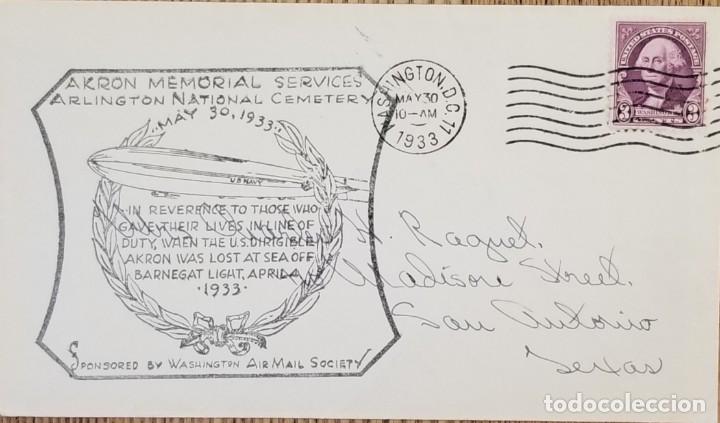 AKRON MEMORIAL SERVICES
ARLINGTON NATIONAL CEMETERY
MAY 30, 1933
U.S. NAVY
IN REVERENCE TO THOSE WHO
GAVE THEIR LIVES IN LINE OF
DUTY, WHEN THE U.S. DIRIGIBLE
AKRON WAS LOST AT SEA OFF
BARNEGAT LIGHT, APRIL 4
·1933·
SPONSORED BY WASHINGTON AIR MAIL SOCIETY
WASHINGTON, D.C. 11
MAY 30
10-AM
1933
UNITED STATES POSTAGE
3 WASHINGTON 3
H. Raquet,
Madison Street,
San Antonio
Texas
todocoleccion
todocoleccion.net